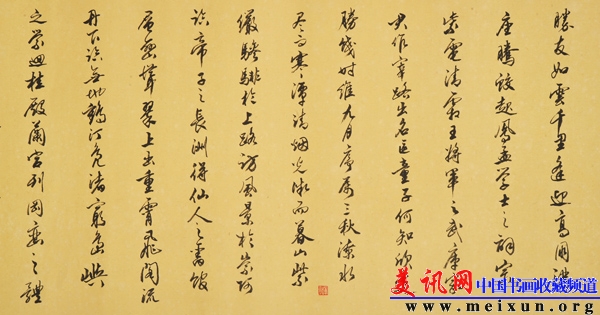 勝友如雲千里逢迎高朋滿
座騰蛟起鳳孟学士之詞宗
紫電清霜王將軍之武庫家
君作宰路出名區童子何知
勝餞时維九月序属三秋潦水
尽而寒潭清烟光凝而暮山紫
儼驂騑於上路訪風景於崇阿
臨帝子之長洲得仙人之舊館
層巒聳翠上出重霄飛閣流
丹下臨無地鶴汀鳧渚窮島嶼
之縈迴桂殿蘭宮列岡巒之體
美讯网 中国书画收藏频道
www.meixun.org